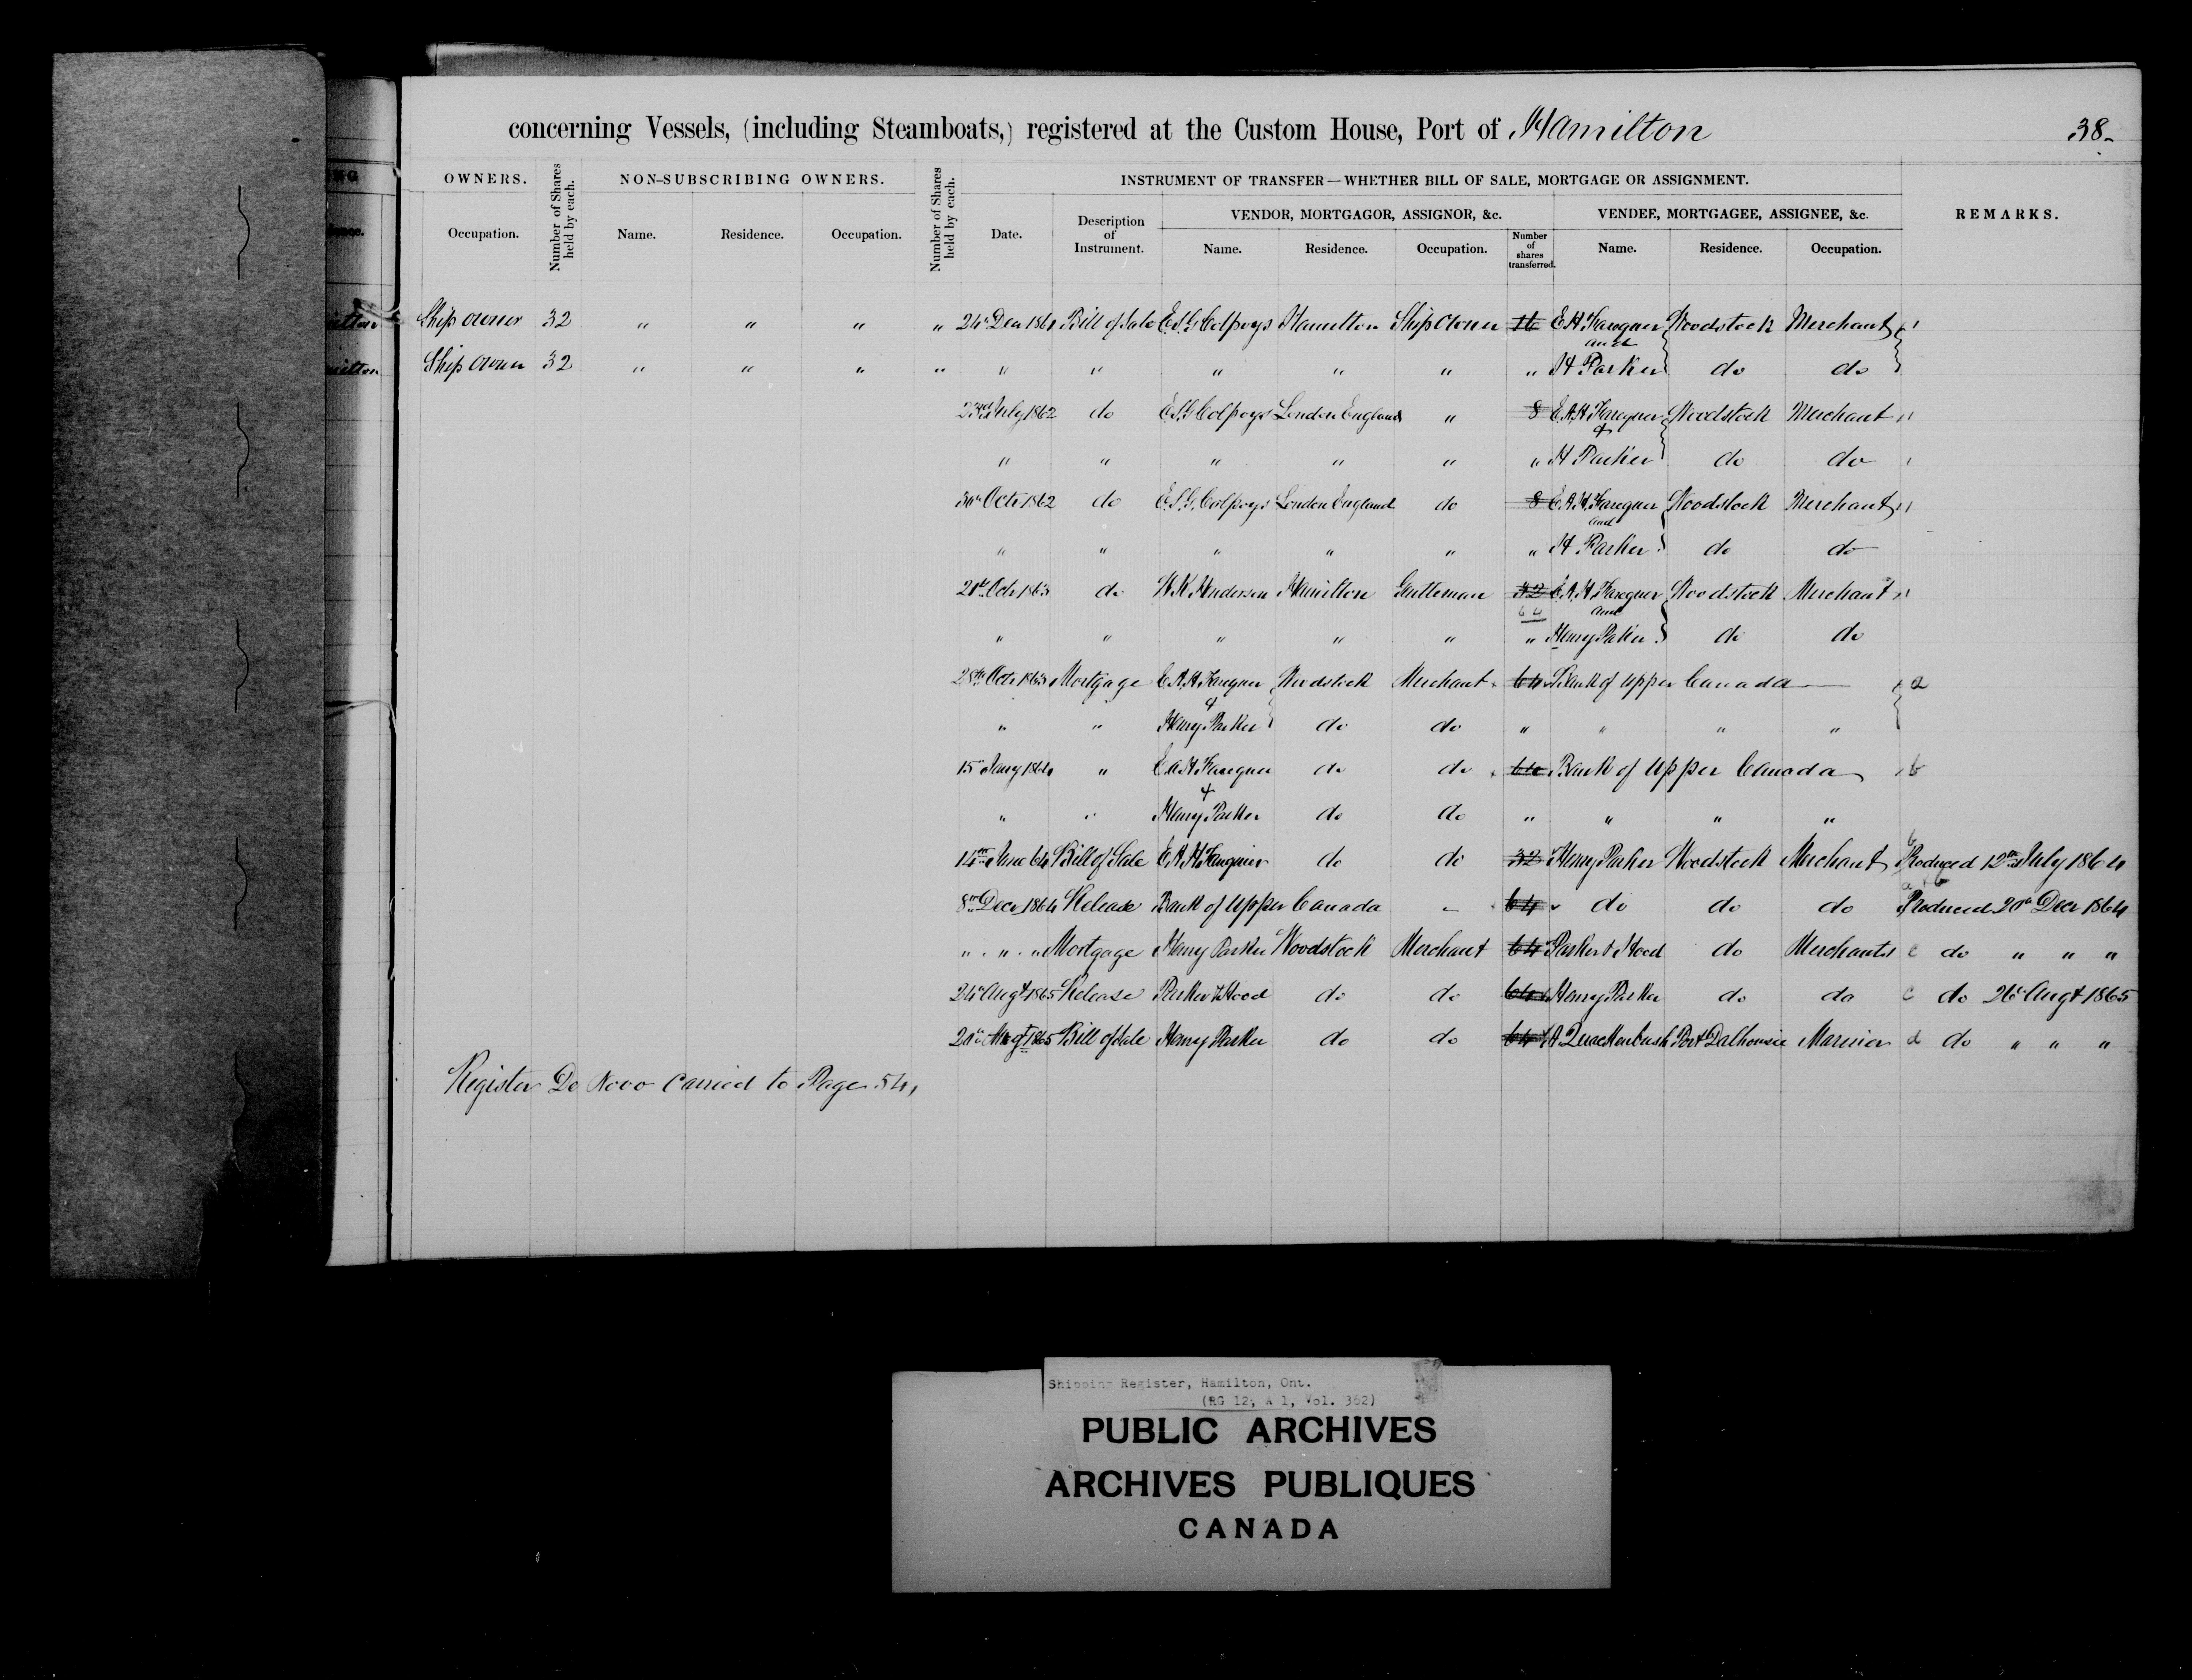 concerning Vessels, (including Steamboats,) registered at the Custom House, Port of Hamilton 38
OWNERS. Number of Shares held by each. NON-SUBSCRIBING OWNERS. Number of Shares held by each. INSTRUMENT OF TRANSFER—WHETHER BILL OF SALE, MORTGAGE OR ASSIGNMENT. REMARKS.
VENDOR, MORTGAGOR, ASSIGNOR, &c. VENDEE, MORTGAGEE, ASSIGNEE, &c.
Occupation. Name. Residence. Occupation. Date. Description of Instrument. Name. Residence. Occupation. Number of shares transferred. Name. Residence. Occupation.
Ship owner 32 " " " " Bill of Sale E.S.G. Colpoys Hamilton Ship Owner 16 Woodstock Merchant
and
Ship Owner 32 " " " " " " " " " " H Parker do do
23rd July 1862 do E.S.G. Colpoys London England " 8 Woodstock Merchant
&
" " " " " " H Parker do do
Octr 1862 do E.S.G. Colpoys London England do 8 Woodstock Merchant
and
" " " " " " H Parker do do
Octr 1863 do Henderson Hamilton Gentleman 32 Woodstock Merchant
64 and
" " " " " " Henry Parker do do
28th Octr 1863 Mortgage Woodstock Merchant 64 Bank of Upper Canada a
&
" " Henry Parker do do " " " "
15 Jany 1864 " do do 64 Bank of Upper Canada b
&
" " Henry Parker do do " " " "
14th June 64 Bill of Sale do do 32 Henry Parker Woodstock Merchant b Produced 12th July 1864
8th Decr 1864 Release Bank of Upper Canada - 64 do do do a Produced 20th Decr 1864
" " " Mortgage Henry Parker Woodstock Merchant 64 Parker & Hood do Merchants c do " " "
24th Augt 1865 Release Parker & Hood do do 64 Henry Parker do do c do 26th Augt 1865
Augt 1865 Bill of Sale Henry Parker do do 64 A Quackenbush Port Dalhousie Mariner d do " " "
Register De Novo Carried to Page 54,
Shipping Register, Hamilton, Ont.
(RG 12, A 1, Vol. 362)
PUBLIC ARCHIVES
ARCHIVES PUBLIQUES
CANADA